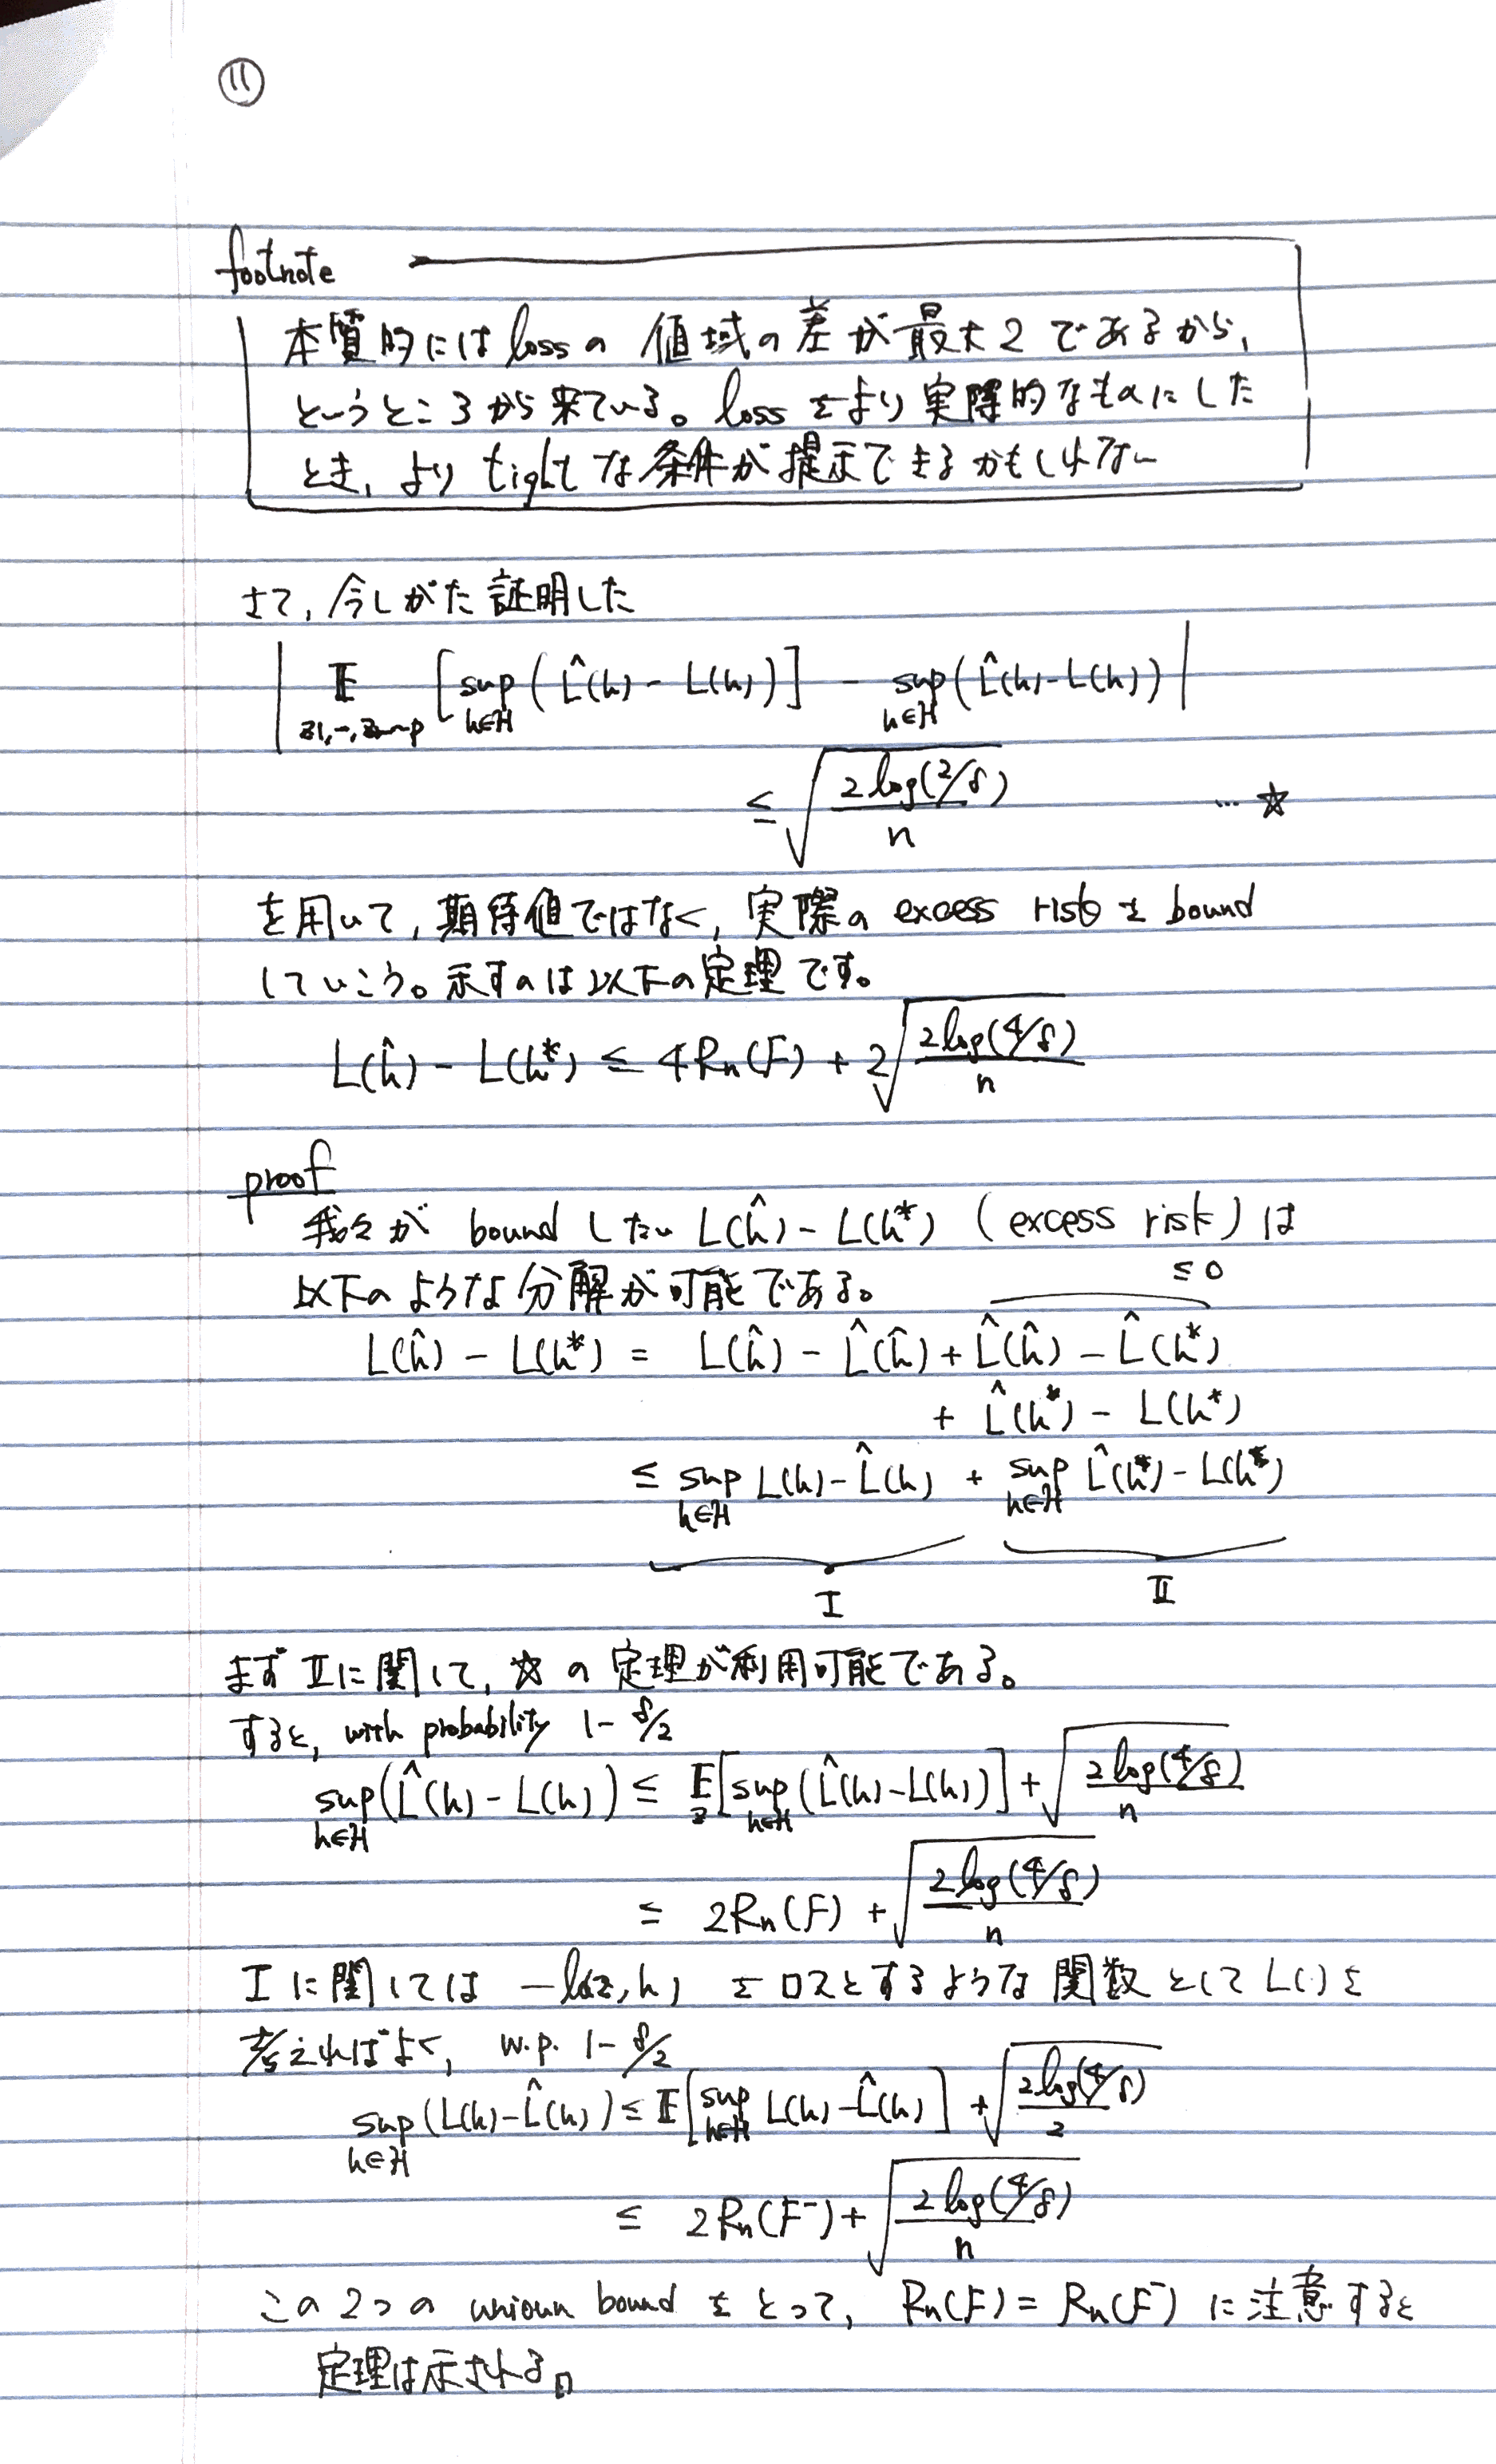 ⑪
footnote
本質的には lossの 値域の差が最大2であるから,
というところから来ている。lossをより実際的なものにした
とき, より tightな条件が提示できるかもしれない
さて, 今しがた証明した
| E_{z1,…,zn~p} [ sup_{h∈H} ( L̂(h) - L(h) ) ] - sup_{h∈H} ( L̂(h) - L(h) ) |
≤ √(2log(2/δ) / n) … ☆
を用いて, 期待値ではなく, 実際の excess riskを bound
していこう。示すのは以下の定理です。
L(ĥ) - L(h*) ≤ 4Rn(F) + 2√(2log(4/δ) / n)
proof
我々が bound したい L(ĥ) - L(h*) (excess risk) は
以下のような分解が可能である。 ≤ 0
L(ĥ) - L(h*) = L(ĥ) - L̂(ĥ) + L̂(ĥ) - L̂(h*)
+ L̂(h*) - L(h*)
≤ sup_{h∈H} L(h) - L̂(h) + sup_{h∈H} L̂(h*) - L(h*)
I II
まず IIに関して, ☆ の定理が利用可能である。
すると, with probability 1 - δ/2
sup_{h∈H} ( L̂(h) - L(h) ) ≤ E_z [ sup_{h∈H} ( L̂(h) - L(h) ) ] + √(2log(4/δ) / n)
≤ 2Rn(F) + √(2log(4/δ) / n)
Iに関しては -l(z, h) をロスとするような関数として L(·)を
考えればよく, w.p. 1 - δ/2
sup_{h∈H} ( L(h) - L̂(h) ) ≤ E [ sup_{h∈H} L(h) - L̂(h) ] + √(2log(4/δ) / 2)
≤ 2Rn(F⁻) + √(2log(4/δ) / n)
この2つの unioun bound をとって, Rn(F) = Rn(F⁻) に注意すると
定理は示される。□